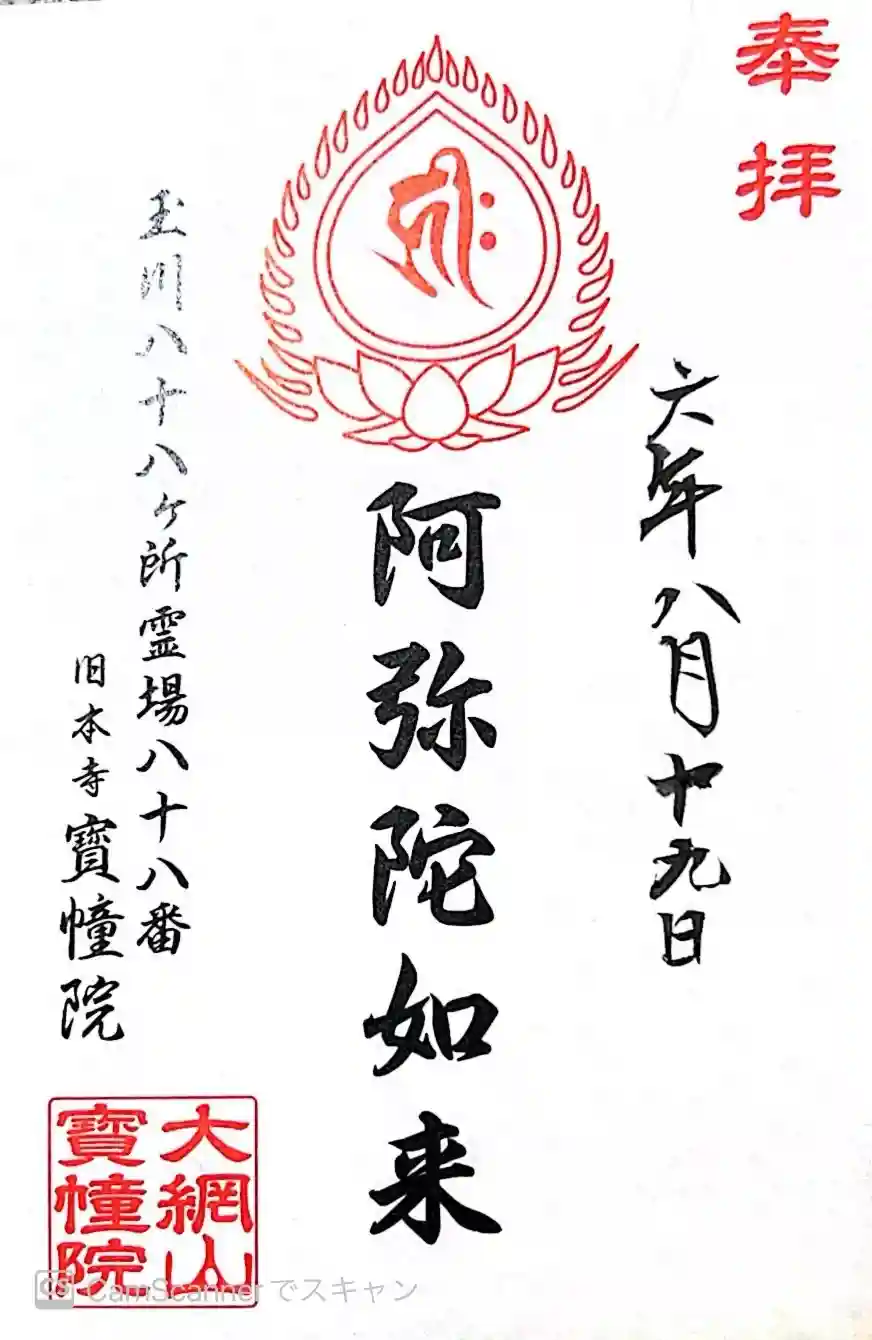 奉拝
六年八月十九日
キリーク
阿弥陀如来
玉川八十八ヶ所霊場八十八番
旧本寺寳幢院
大網山
寳幢院
CS CamScannerでスキャン